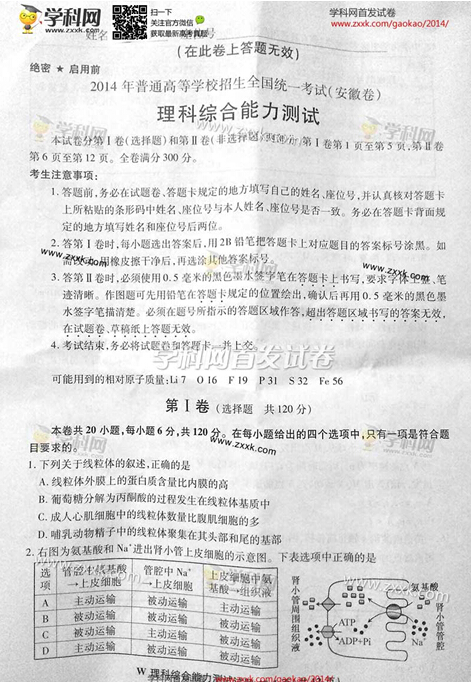 学科网
www.zxxk.com
扫一扫
关注官方微信
免费获取试题
学科网首发试卷
www.zxxk.com/gaokao/2014/
姓名
(在此卷上答题无效)
绝密 ★ 启用前
2014 年普通高等学校招生全国统一考试(安徽卷)
理科综合能力测试
本试卷分第Ⅰ卷(选择题)和第Ⅱ卷(非选择题)两部分,第Ⅰ卷第 1 页至第 5 页,第Ⅱ卷
第 6 页至第 12 页。全卷满分 300 分。
考生注意事项:
1. 答题前,务必在试题卷、答题卡规定的地方填写自己的姓名、座位号,并认真核对答题卡
上所粘贴的条形码中姓名、座位号与本人姓名、座位号是否一致。务必在答题卡背面规
定的地方填写姓名和座位号后两位。
2. 答第Ⅰ卷时,每小题选出答案后,用 2B 铅笔把答题卡上对应题目的答案标号涂黑。如
需改动,用橡皮擦干净后,再选涂其他答案标号。
3. 答第Ⅱ卷时,必须使用 0.5 毫米的黑色墨水签字笔在答题卡上书写,要求字体工整、笔
迹清晰。作图题可先用铅笔在答题卡规定的位置绘出,确认后再用 0.5 毫米的黑色墨
水签字笔描清楚。必须在题号所指示的答题区域作答,超出答题区域书写的答案无效,
在试题卷、草稿纸上答题无效。
4. 考试结束,务必将试题卷和答题卡一并上交。
学科网首发试卷
可能用到的相对原子质量:Li 7 O 16 F 19 P 31 S 32 Fe 56
第Ⅰ卷(选择题 共 120 分)
本卷共 20 小题,每小题 6 分,共 120 分。在每小题给出的四个选项中,只有一项是符合题
目要求的。
1. 下列关于线粒体的叙述,正确的是
A. 线粒体外膜上的蛋白质含量比内膜的高
B. 葡萄糖分解为丙酮酸的过程发生在线粒体基质中
C. 成人心肌细胞中的线粒体数量比腹肌细胞的多
D. 哺乳动物精子中的线粒体聚集在其头部和尾的基部
2. 右图为氨基酸和 Na⁺ 进出肾小管上皮细胞的示意图。下表选项中正确的是
选项 管腔中氨基酸→上皮细胞 管腔中 Na⁺→上皮细胞 上皮细胞中氨基酸→组织液
A 主动运输 被动运输 主动运输
B 被动运输 被动运输 被动运输
C 被动运输 主动运输 被动运输
D 主动运输 被动运输 被动运输
肾小管周围组织液
ATP
ADP+Pi
氨基酸
Na⁺
肾小管管腔
W 理科综合能力测试
www.zxxk.com/gaokao/2014/